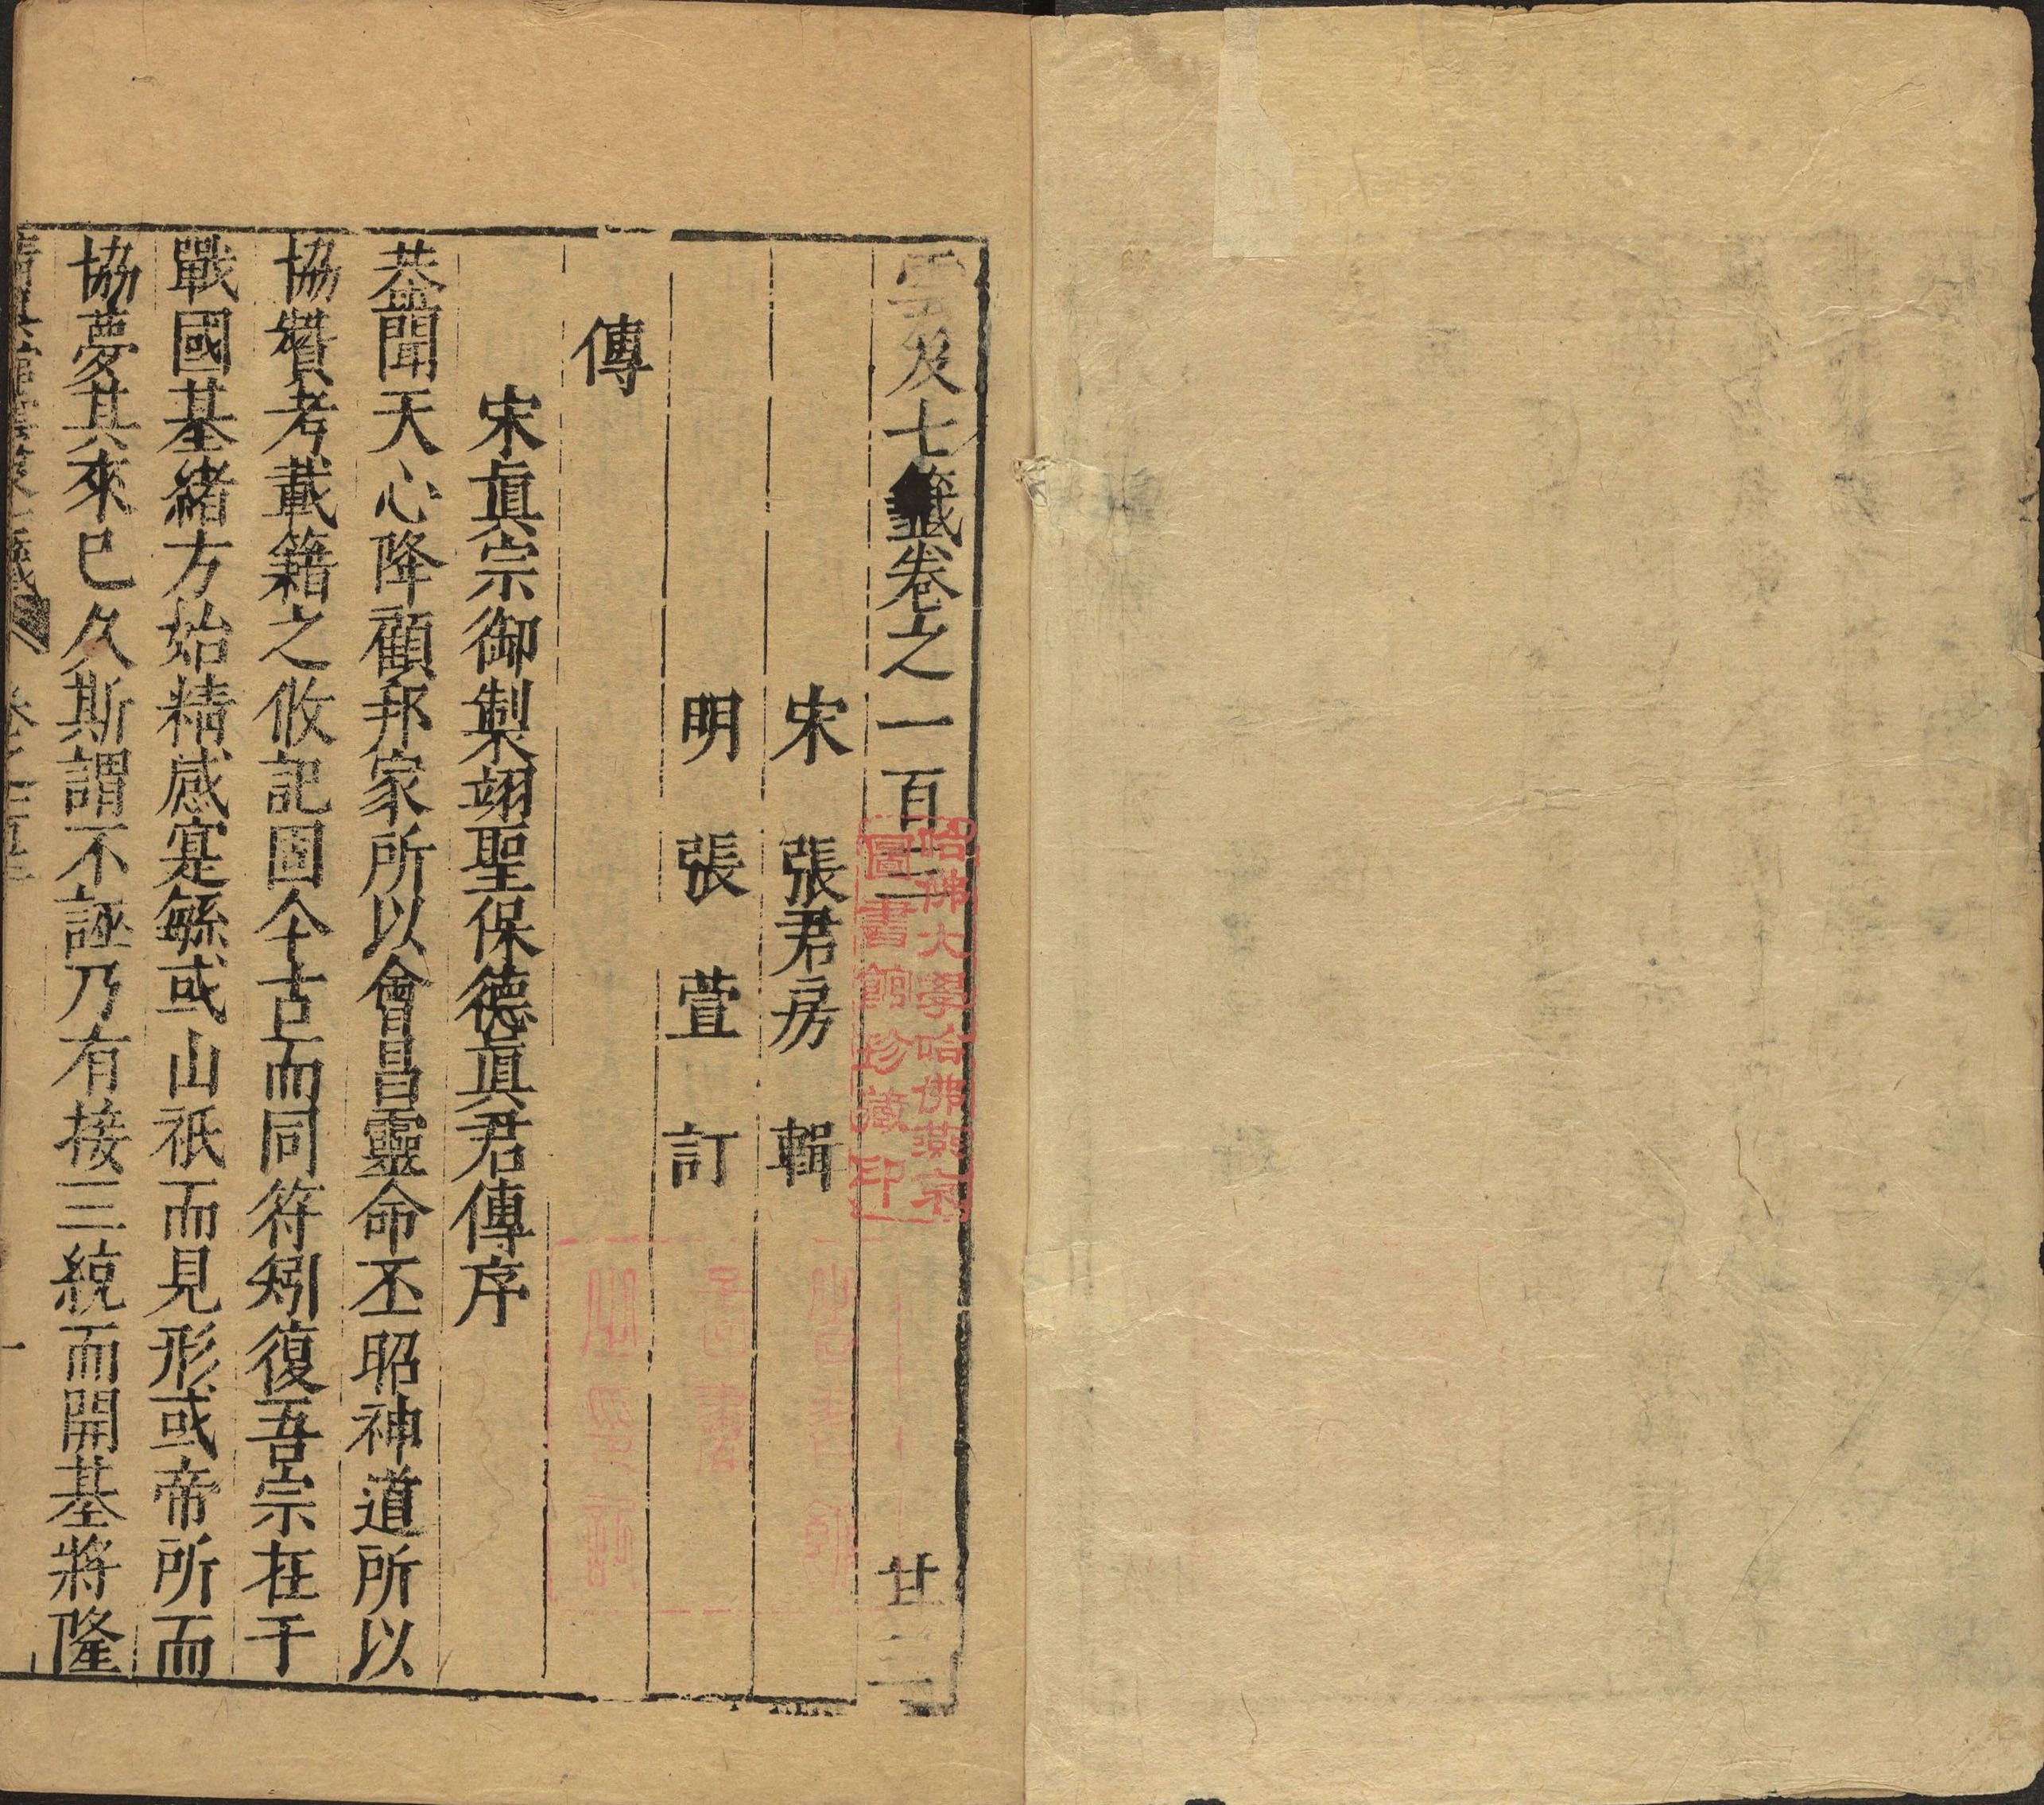 雲及七籤卷之一百三　廿二
宋　張君房　輯
明　張　萱　訂
傳
宋眞宗御製翊聖保德眞君傳序
恭聞天心降顧邦家所以會昌靈命丕昭神道所以
協贊考載籍之攸記固今古而同符矧復吾宗在于
戰國基緒方始精感寔繇或山祇而見形或帝所而
協夢其來已久斯謂不誣乃有接三統而開基將隆
清眞館雲笈七籤　卷之一百三　一
哈佛大學哈佛燕京
圖書館珍藏印